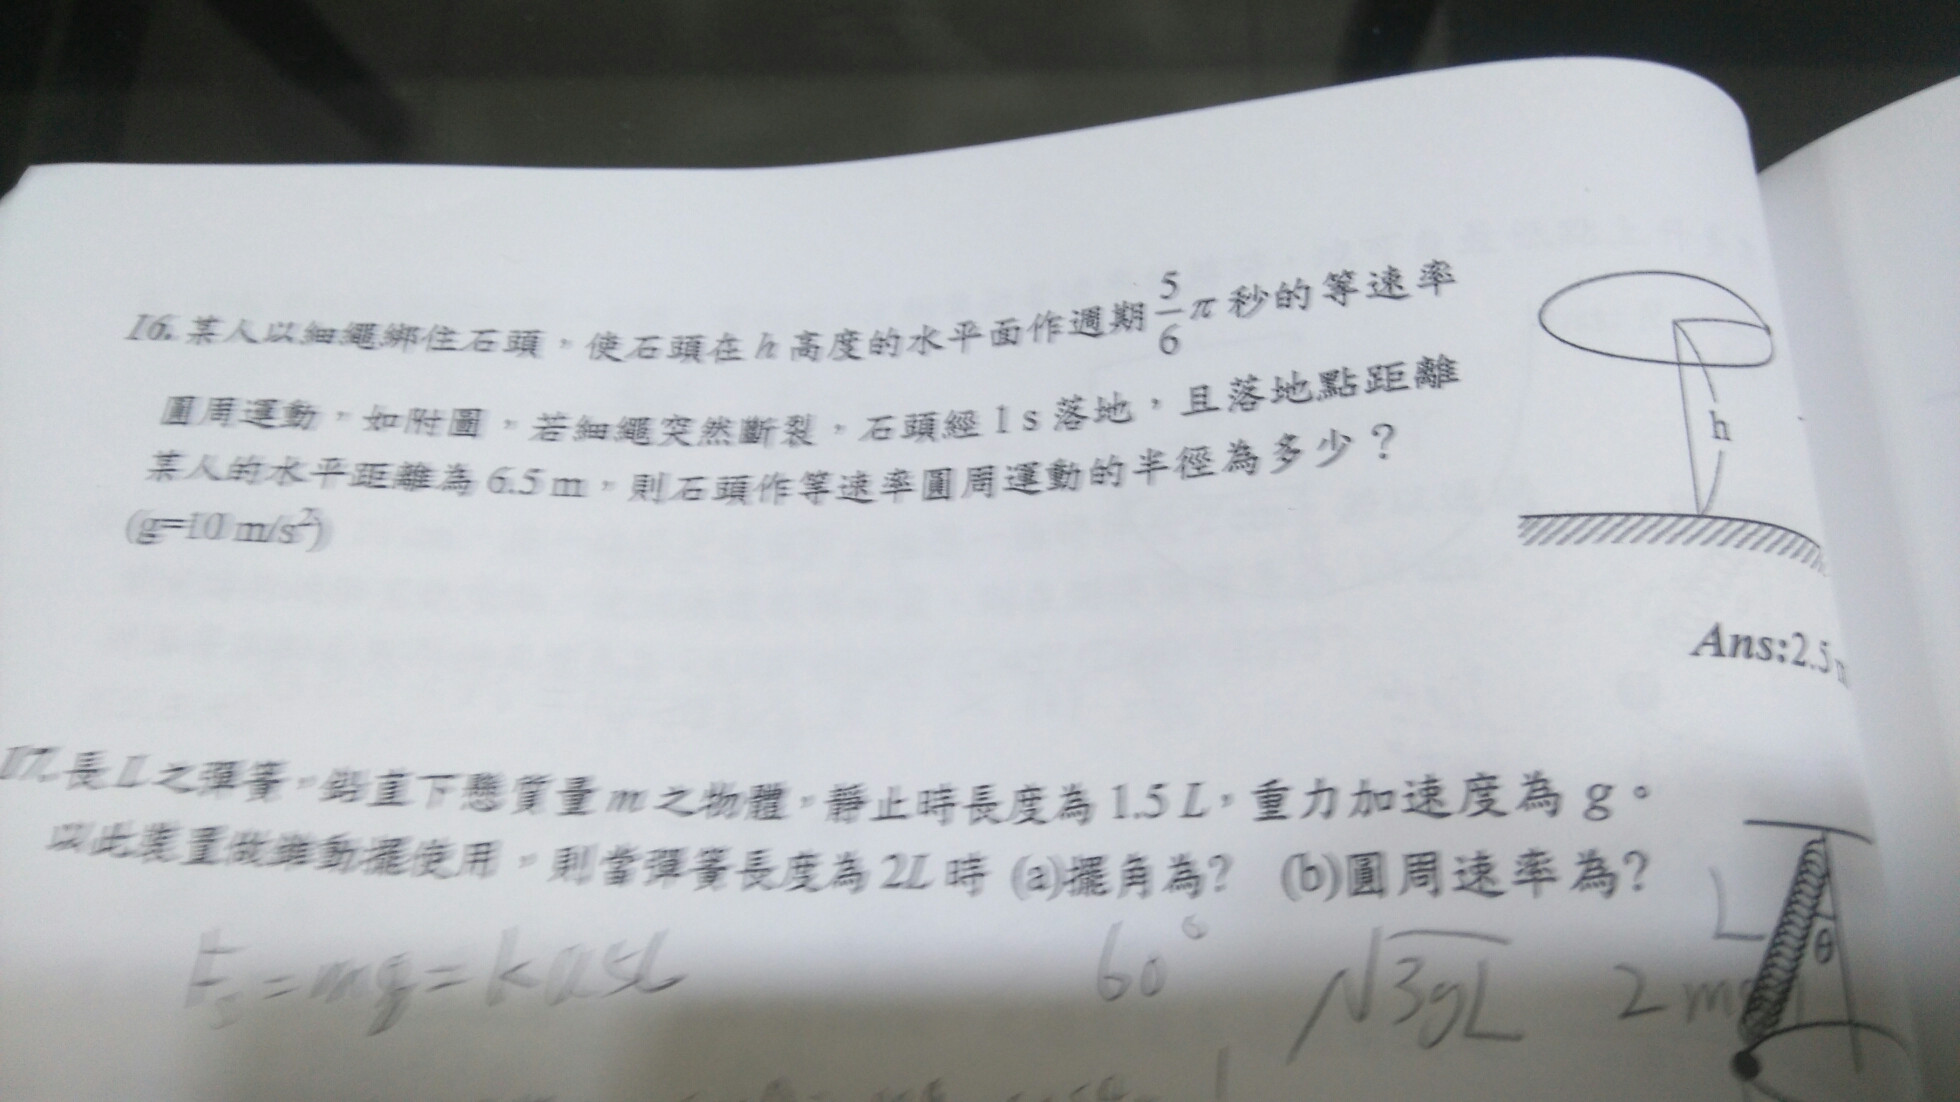 16. 某人以細繩綁住石頭，使石頭在 h 高度的水平面作週期 5/6 π 秒的等速率
圓周運動，如附圖，若細繩突然斷裂，石頭經 1 s 落地，且落地點距離
某人的水平距離為 6.5 m，則石頭作等速率圓周運動的半徑為多少？
(g=10 m/s²)
h
Ans:2.5
17. 長 L 之彈簧，鉛直下懸質量 m 之物體，靜止時長度為 1.5 L，重力加速度為 g。
以此裝置做錐動擺使用，則當彈簧長度為 2L 時 (a)擺角為? (b)圓周速率為?
L
θ
60°
√3gL
2 mg
= mg = k